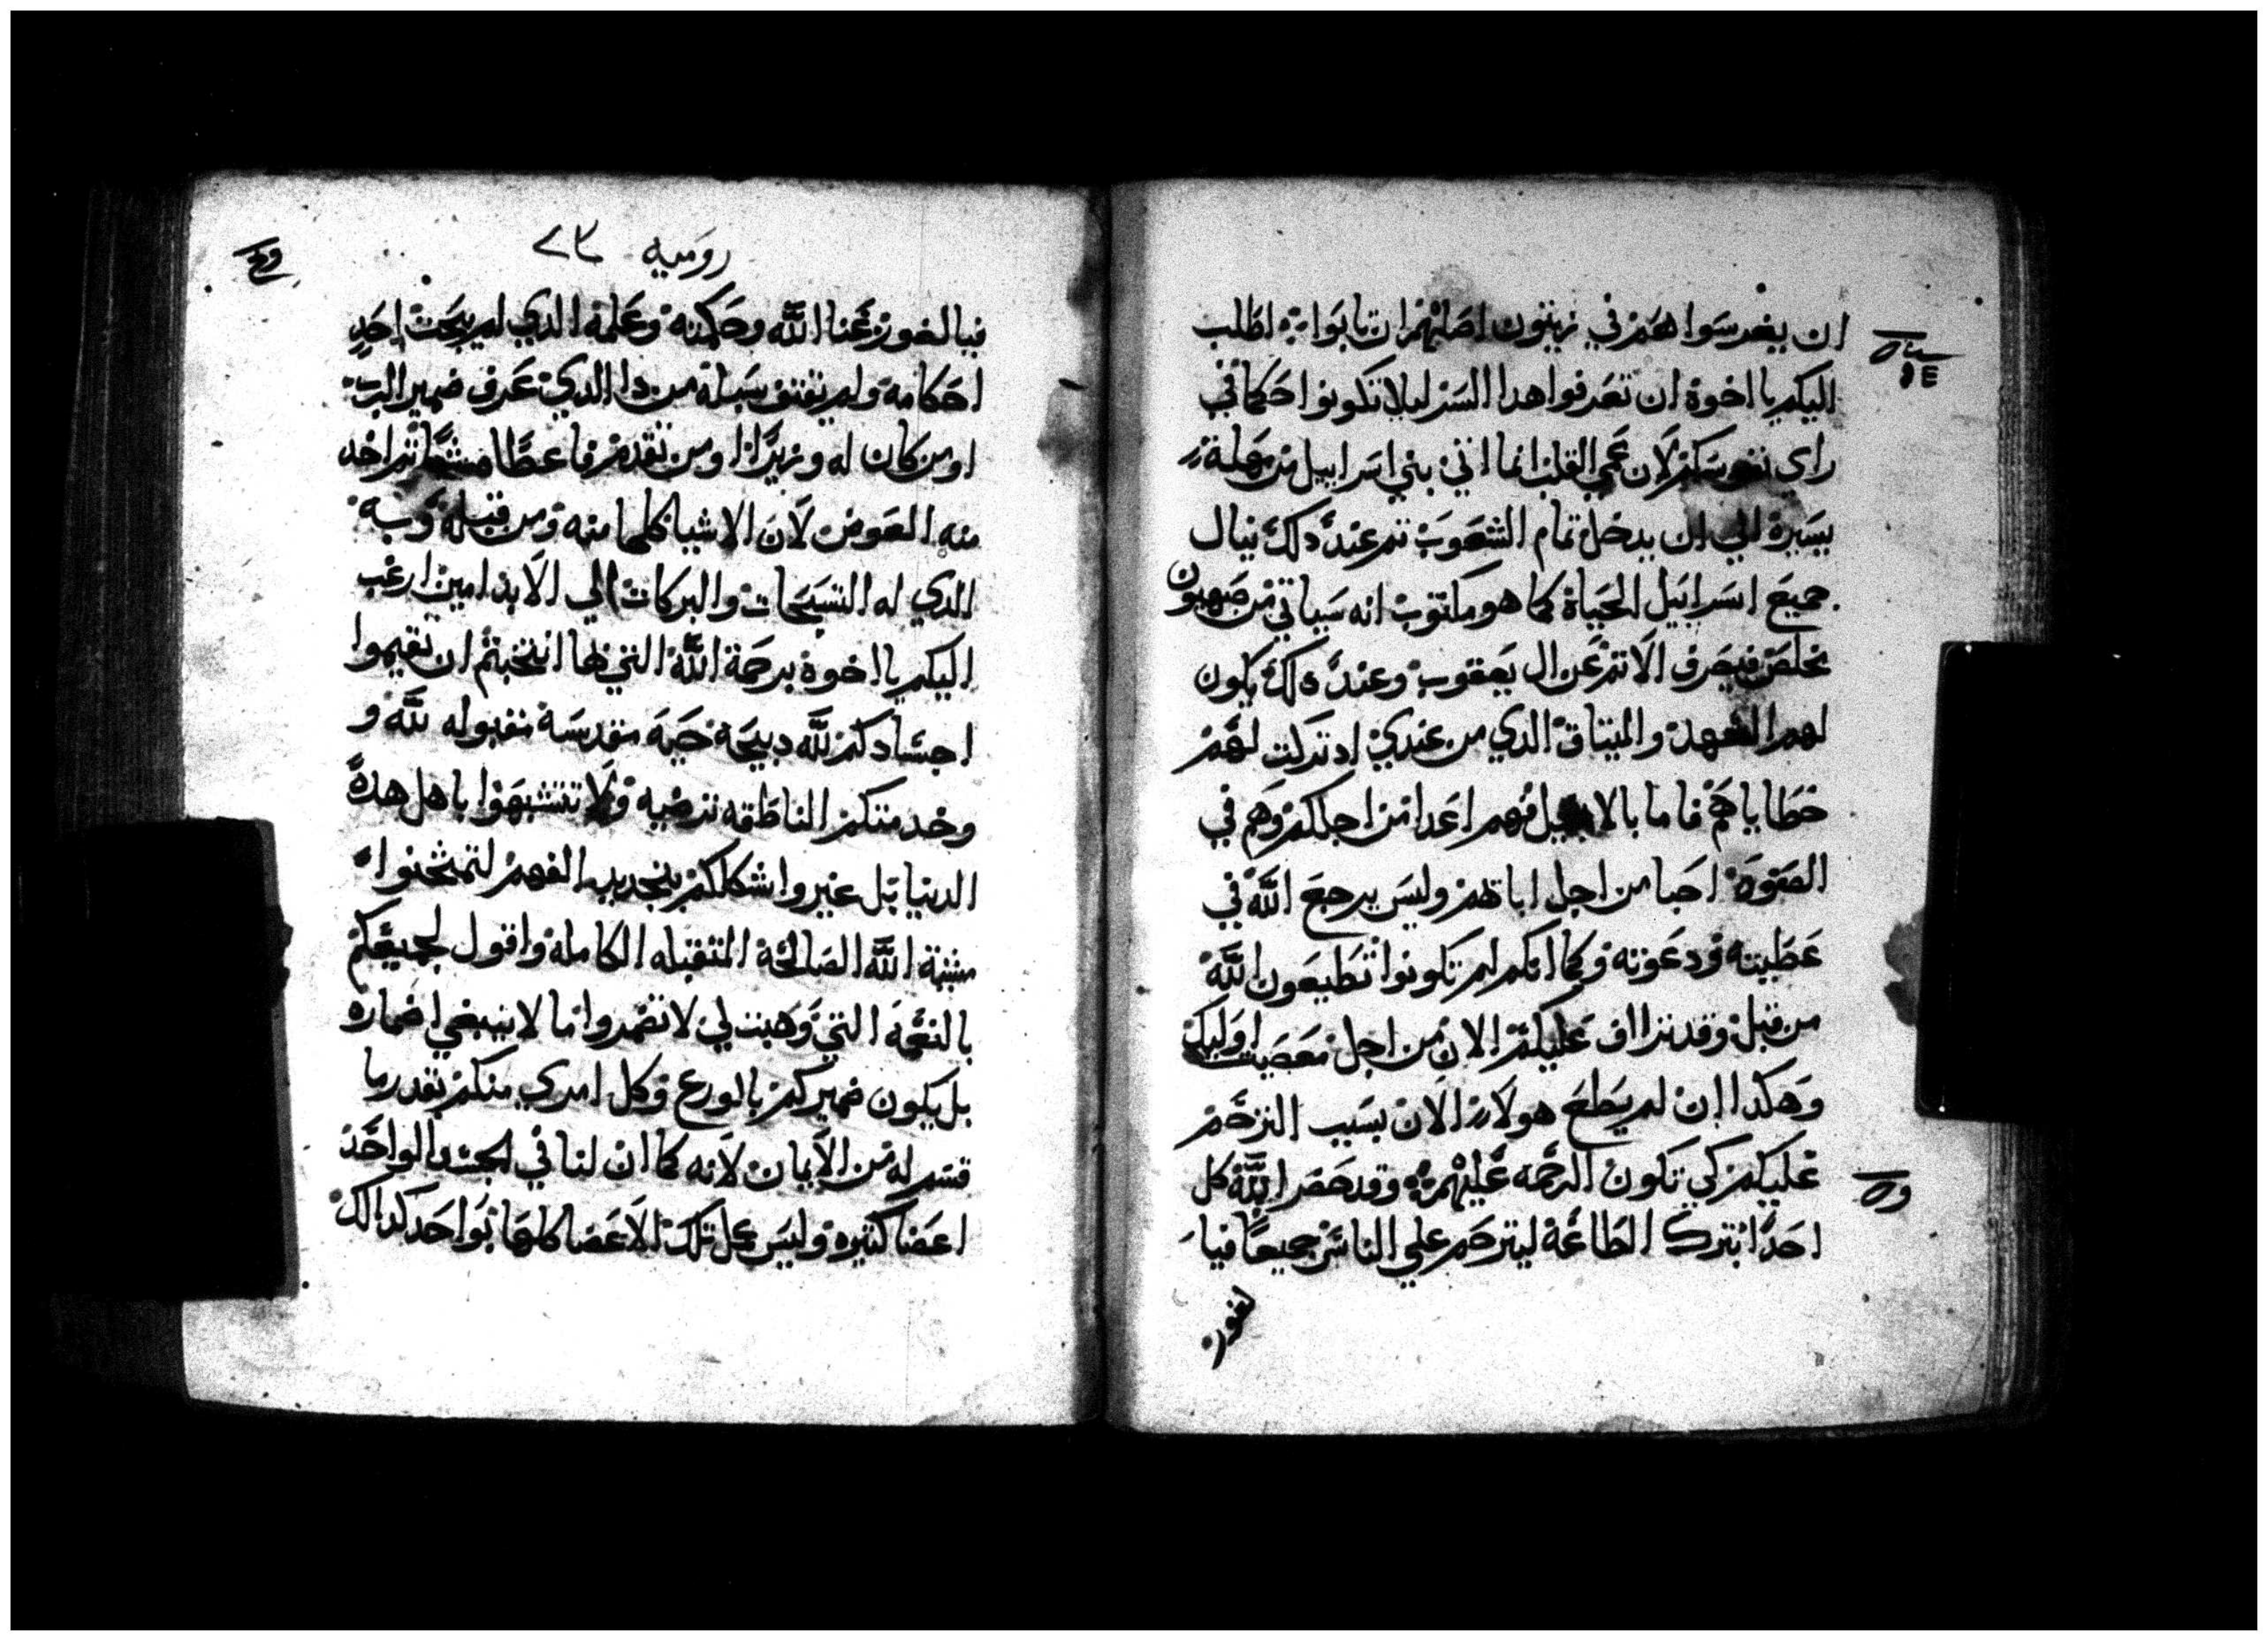 ان يغرسوا هم في زيتون اصلهم ان تابوا اطلب
اليكم يا اخوة ان تعرفوا هدا السر ليلا تكونوا حكما في
راي نفوسكم لان عمي القلب انما اتي بني اسراييل من مهلة
يسيرة الي ان يدخل تمام الشعوب تم عند دلك ينال
جميع اسراييل الحياة كما هو مكتوب انه سياتي من صهيون
مخلص فيصرف الاتم عن ال يعقوب وعند دلك يكون
لهم العهد والميتاق الدي من عندي اد تركت لهم
خطاياهم فاما بالانجيل فهم اعدا من اجلكم وهم في
الصفوة احبا من اجل اباتهم وليس يرجع الله في
عطيته ودعوته وكما انكم لم تكونوا تطيعون الله
من قبل وقد تراف عليكم الان من اجل معصية اوليك
وهكدا ان لم يطع هولاء الان بسبب الترحم
عليكم كي تكون الرحمه عليهم وقد حصر الله كل
احدا بترك الطاعة ليترحم علي الناس جميعا فيا
لغور
روميه ٢٣
فيالغور غنا الله وحكمته وعلمه الدي لم يبحت احد
احكامه ولم يقتف سبله من دا الدي عرف ضمير الرب
او من كان له وزيرا او من تقدم فاعطا تم اخد
منه العوض لان الاشيا كلها منه ومن قبله وبه
الدي له التسبحات والبركات الي الابد امين ارغب
اليكم يا اخوة برحمة الله التي بها انتخبتم ان تقيموا
اجسادكم لله دبيحة حية مقدسة مقبوله لله و
وخدمتكم الناطقه ترضيه ولا تتشبهوا باهل هده
الدنيا بل غيروا اشكالكم بتجديد الفهم لتمتحنوا
مشية الله الصالحة المتقبله الكامله واقول لجميعكم
بالنعمة التي وهبت لي لا تضمروا ما لا ينبغي اضماره
بل يكون ضميركم بالورع وكل امري منكم بقدر ما
قسم له من الايمان لانه كما ان لنا في الجسد الواحد
اعضا كتيره وليس عمل تلك الاعضا كلها بواحد كدالك